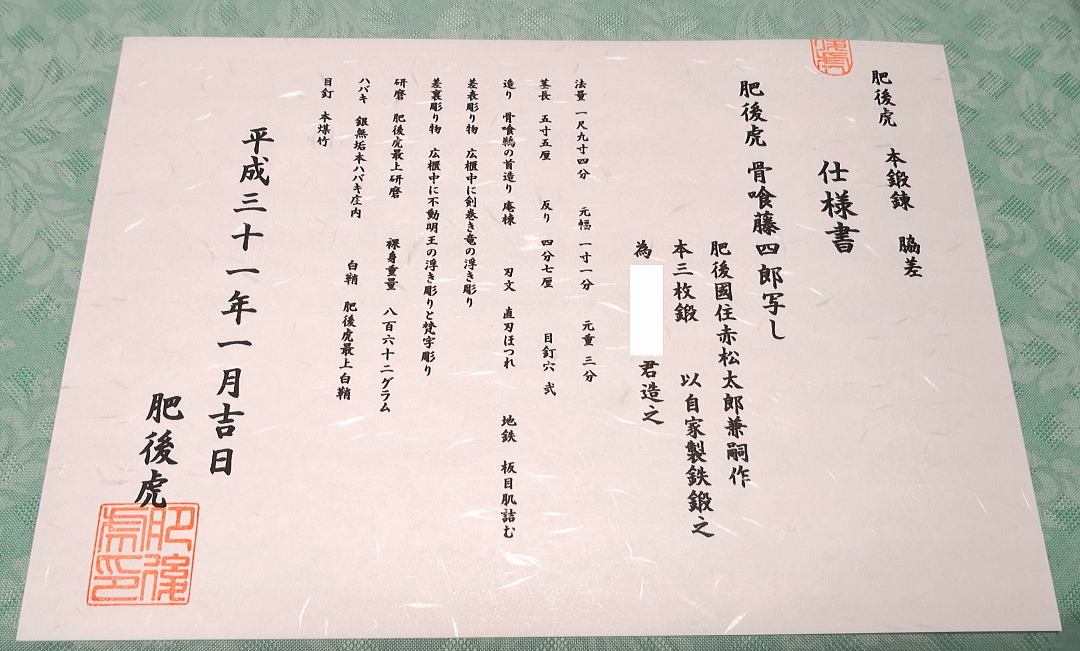 肥後虎 本鍛錬 脇差
仕様書
肥後虎 骨喰藤四郎写し
肥後國住赤松太郎兼嗣作
本三枚鍛 以自家製鉄鍛之
為 君造之
法量 一尺九寸四分 元幅 一寸一分 元重 三分
茎長 五寸五厘 反り 四分七厘 目釘穴 弐
造り 骨喰鵜の首造り 庵棟 刃文 直刃ほつれ 地鉄 板目肌詰む
差表彫り物 広樋中に剣巻き竜の浮き彫り
差裏彫り物 広樋中に不動明王の浮き彫りと梵字彫り
研磨 肥後虎最上研磨 裸身重量 八百六十二グラム
ハバキ 銀無垢本ハバキ庄内 白鞘 肥後虎最上白鞘
目釘 本煤竹
平成三十一年一月吉日
肥後虎
肥後虎印